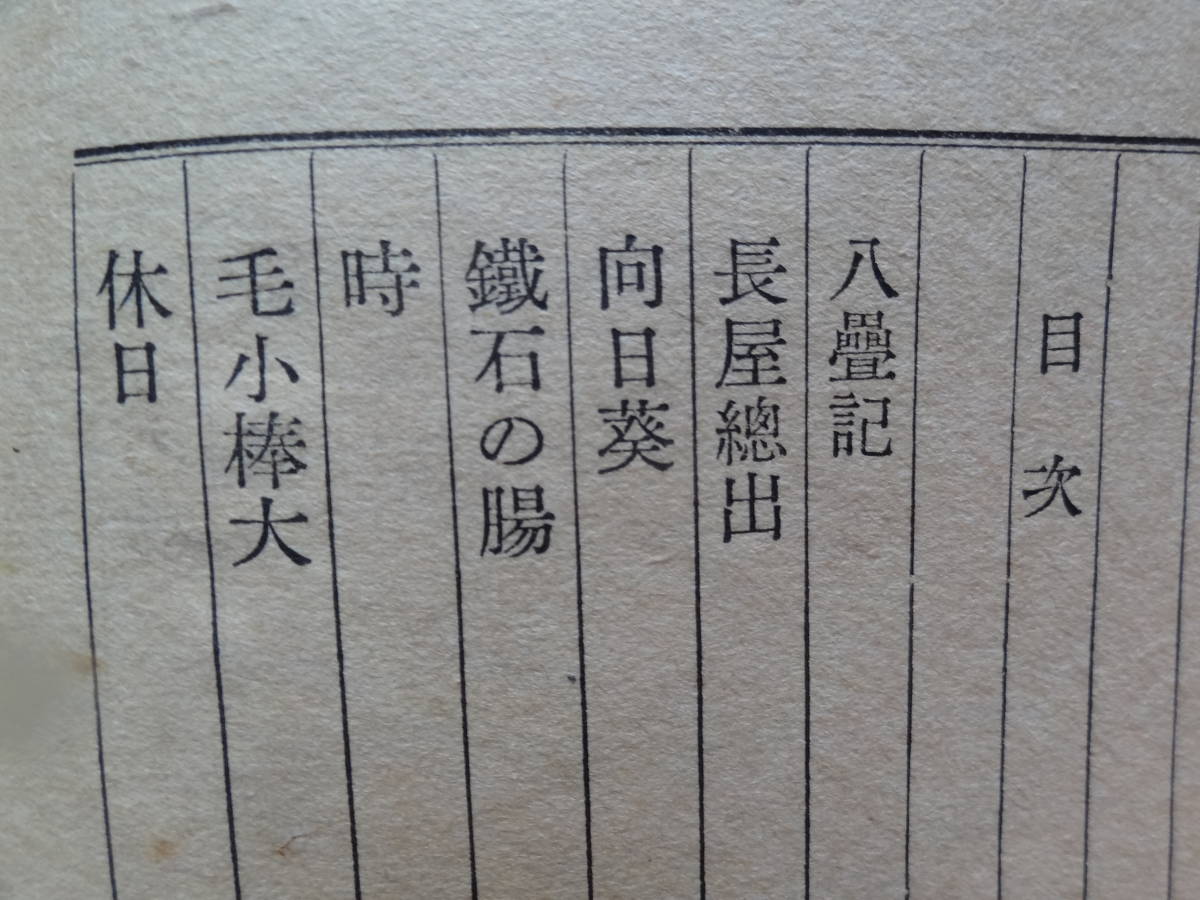 目次
八疊記
長屋總出
向日葵
鐵石の腸
時
毛小棒大
休日